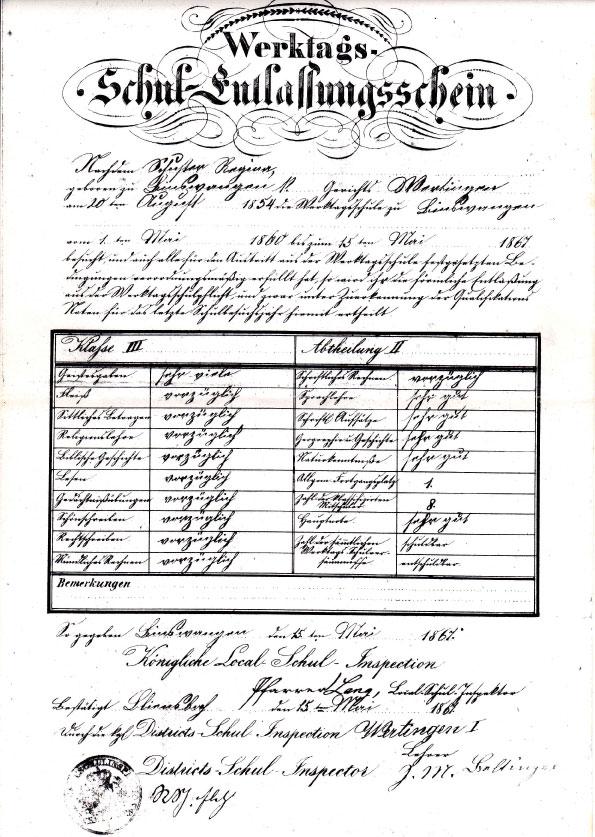 Werktags-
Schul-Entlassungsschein.
Nachdem Schuster Regina,
geboren zu Binswangen k. Gerichts Wertingen
am 20 ten August 1854 die Werktagsschule zu Binswangen
vom 1. ten Mai 1860 bis zum 15 ten Mai 1867
besucht, und auch alle für den Austritt aus der Werktagsschule festgesetzten Be-
dingungen verordnungsmäßig erfüllt hat, so wird ihr die förmliche Entlassung
aus der Werktagsschulpflicht, und zwar unter Zuerkennung der Qualifikations
Noten für das letzte Schulbesuchsjahr hiemit ertheilt.
Klasse III Abtheilung II
Geistesgaben sehr viele Schriftliches Rechnen vorzüglich
Fleiß vorzüglich Sprachlehre sehr gut
Sittliches Betragen vorzüglich Schriftl. Aufsätze sehr gut
Religionslehre vorzüglich Geographie u. Geschichte sehr gut
Biblische Geschichte vorzüglich Naturkenntniße sehr gut
Lesen vorzüglich Allgem. Fortgangsplatz 1.
Gedächtnißübungen vorzüglich Zahl der Mitschüler 8.
Schönschreiben vorzüglich Hauptnote sehr gut
Rechtschreiben vorzüglich Zahl der sämtlichen Werktags Schulver- schuldbar
Mündliches Rechnen vorzüglich säumnisse entschuldbar
Bemerkungen
So gegeben Binswangen den 15. ten Mai 1867.
Königliche Local-Schul-Inspection
Pfarrer Lang, Local-Schul-Inspektor
Bestätigt den 15 ten Mai 186
Durch die kgl. Districts-Schul-Inspection Wertingen I
Lehrer
Districts-Schul-Inspector J. M.